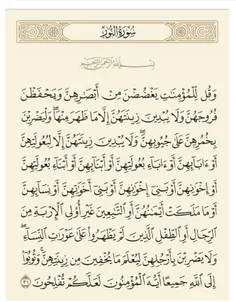 سُورَةُ النُّورِ
بِسْمِ اللَّهِ الرَّحْمَٰنِ الرَّحِيمِ
وَقُل لِّلْمُؤْمِنَٰتِ يَغْضُضْنَ مِنْ أَبْصَٰرِهِنَّ وَيَحْفَظْنَ
فُرُوجَهُنَّ وَلَا يُبْدِينَ زِينَتَهُنَّ إِلَّا مَا ظَهَرَ مِنْهَا ۖ وَلْيَضْرِبْنَ
بِخُمُرِهِنَّ عَلَىٰ جُيُوبِهِنَّ ۖ وَلَا يُبْدِينَ زِينَتَهُنَّ إِلَّا لِبُعُولَتِهِنَّ
أَوْ ءَابَآئِهِنَّ أَوْ ءَابَآءِ بُعُولَتِهِنَّ أَوْ أَبْنَآئِهِنَّ أَوْ أَبْنَآءِ بُعُولَتِهِنَّ
أَوْ إِخْوَٰنِهِنَّ أَوْ بَنِىٓ إِخْوَٰنِهِنَّ أَوْ بَنِىٓ أَخَوَٰتِهِنَّ أَوْ نِسَآئِهِنَّ
أَوْ مَا مَلَكَتْ أَيْمَٰنُهُنَّ أَوِ ٱلتَّٰبِعِينَ غَيْرِ أُو۟لِى ٱلْإِرْبَةِ مِنَ
ٱلرِّجَالِ أَوِ ٱلطِّفْلِ ٱلَّذِينَ لَمْ يَظْهَرُوا۟ عَلَىٰ عَوْرَٰتِ ٱلنِّسَآءِ ۖ
وَلَا يَضْرِبْنَ بِأَرْجُلِهِنَّ لِيُعْلَمَ مَا يُخْفِينَ مِن زِينَتِهِنَّ ۚ وَتُوبُوٓا۟
إِلَى ٱللَّهِ جَمِيعًا أَيُّهَ ٱلْمُؤْمِنُونَ لَعَلَّكُمْ تُفْلِحُونَ ٣١